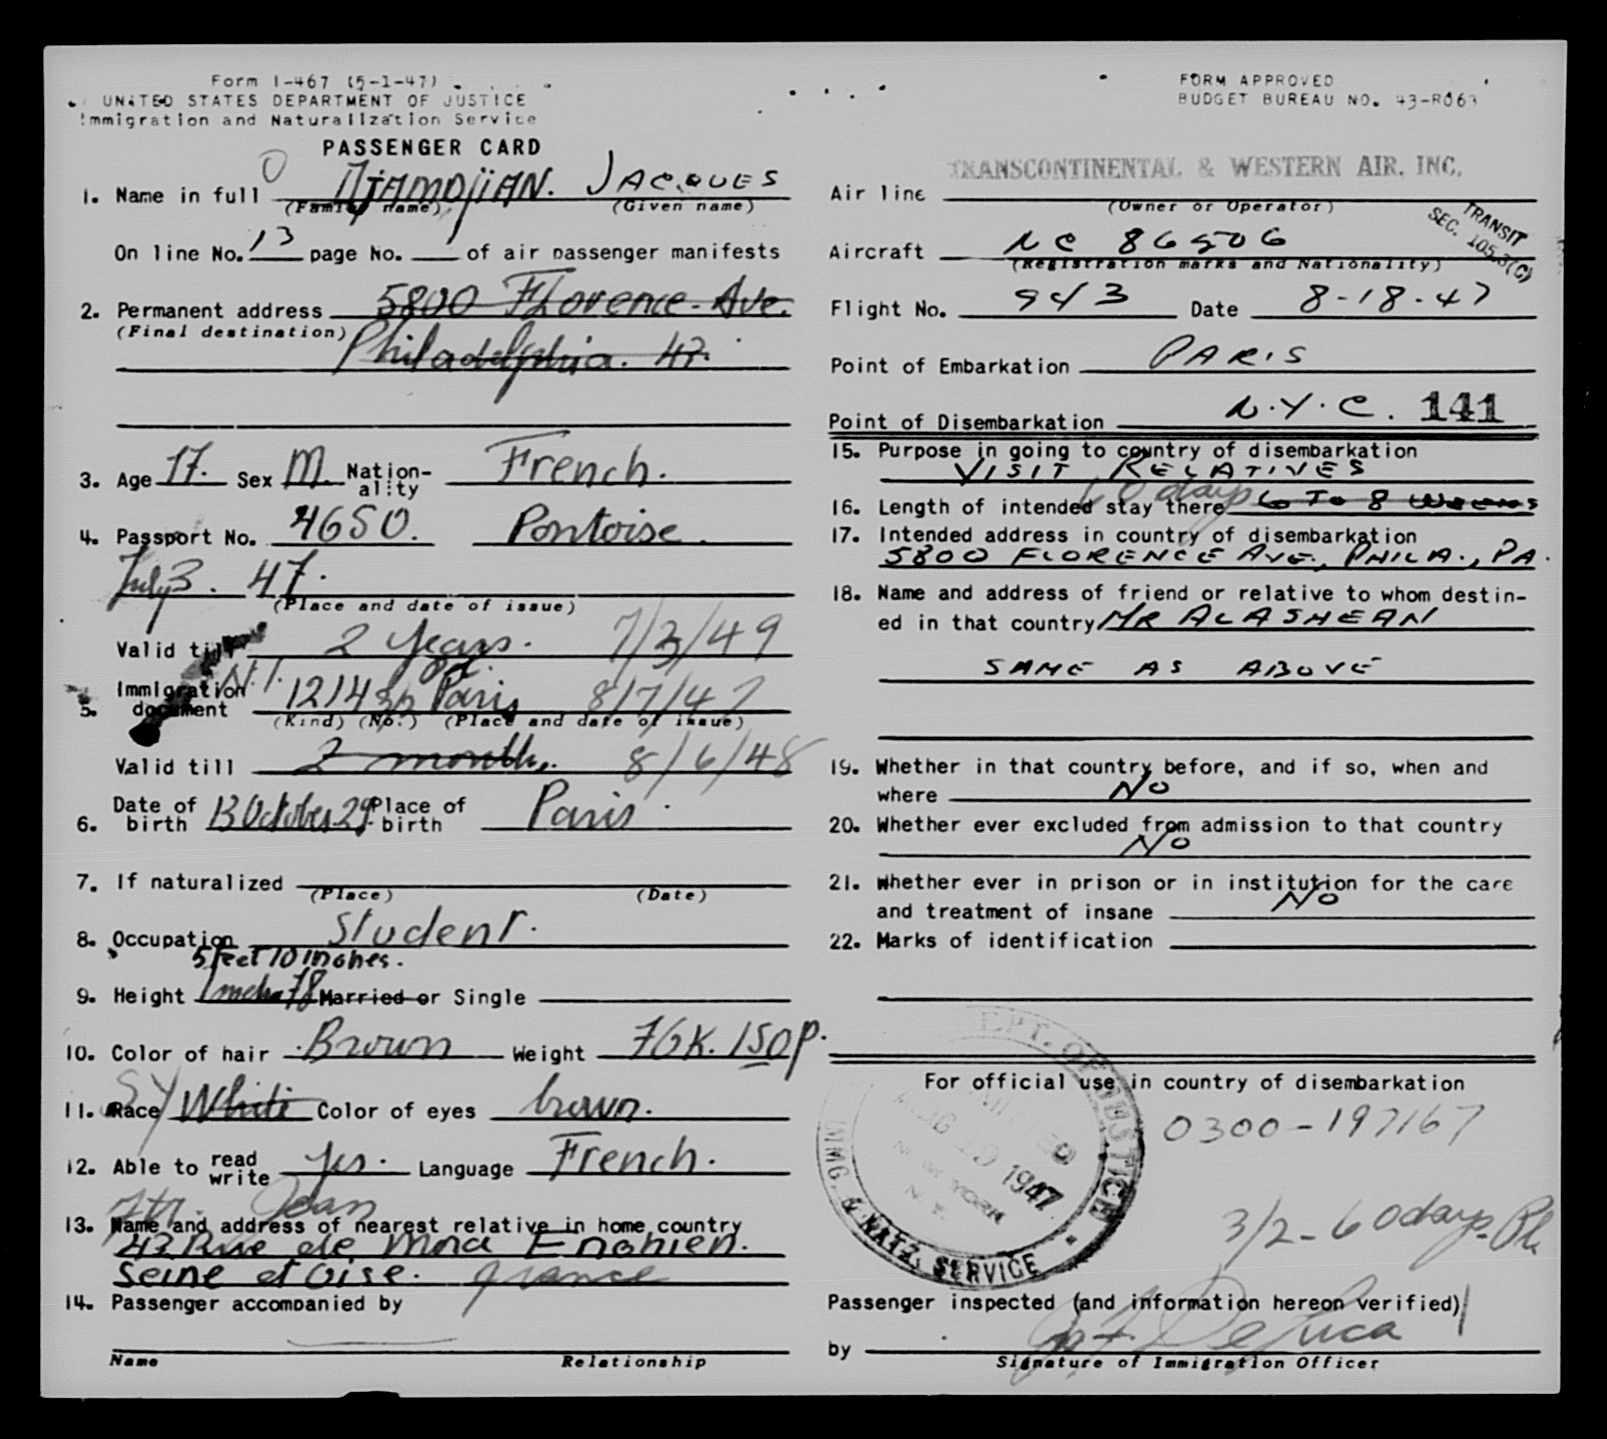 Form I-467 (5-1-47)
UNITED STATES DEPARTMENT OF JUSTICE
Immigration and Naturalization Service
PASSENGER CARD
1. Name in full DJAMDJIAN. JACQUES
(Family name) (Given name)
On line No. 13 page No. 1 of air passenger manifests
2. Permanent address 5800 Florence. Ave.
(Final destination)
Philadelphia. 47.
3. Age 17. Sex M. Nation-ality French.
4. Passport No. 4650. Pontoise.
July 3. 47.
(Place and date of issue)
Valid till 2 years. 7/3/49
5. Immigration document N.I. 1214 Paris 8/7/47
(Kind) (No.) (Place and date of issue)
Valid till 2 months. 8/6/48
6. Date of birth 13 October 29 Place of birth Paris.
7. If naturalized
(Place) (Date)
8. Occupation Student.
5 feet 10 inches.
9. Height 1 metre 78 Married or Single
10. Color of hair Brown Weight 76K. 150p.
SY
11. Race White Color of eyes brown.
12. Able to read write yes. Language French.
Jean
13. Name and address of nearest relative in home country
43 Rue de Mora Enghien.
Seine et Oise. France
14. Passenger accompanied by
Name Relationship
FORM APPROVED
BUDGET BUREAU NO. 43-R063
TRANSCONTINENTAL & WESTERN AIR, INC.
Air line
(Owner or Operator)
TRANSIT
SEC. 105.3(C)
Aircraft NC 86506
(Registration marks and Nationality)
Flight No. 943 Date 8-18-47
Point of Embarkation PARIS
Point of Disembarkation N.Y.C. 141
15. Purpose in going to country of disembarkation
VISIT RELATIVES
60 days
16. Length of intended stay there 6 TO 8 WEEKS
17. Intended address in country of disembarkation
5800 FLORENCE AVE., PHILA., PA.
18. Name and address of friend or relative to whom destin-
ed in that country MR ALASHEAN
SAME AS ABOVE
19. Whether in that country before, and if so, when and
where NO
20. Whether ever excluded from admission to that country
NO
21. Whether ever in prison or in institution for the care
and treatment of insane NO
22. Marks of identification
For official use in country of disembarkation
0300-197167
DEPT. OF JUSTICE
ADMITTED
AUG 19 1947
NEW YORK
N.Y.
IMMG. & NATZ. SERVICE
3/2-60 days. Ph
Passenger inspected (and information hereon verified)
by De Luca
Signature of Immigration Officer